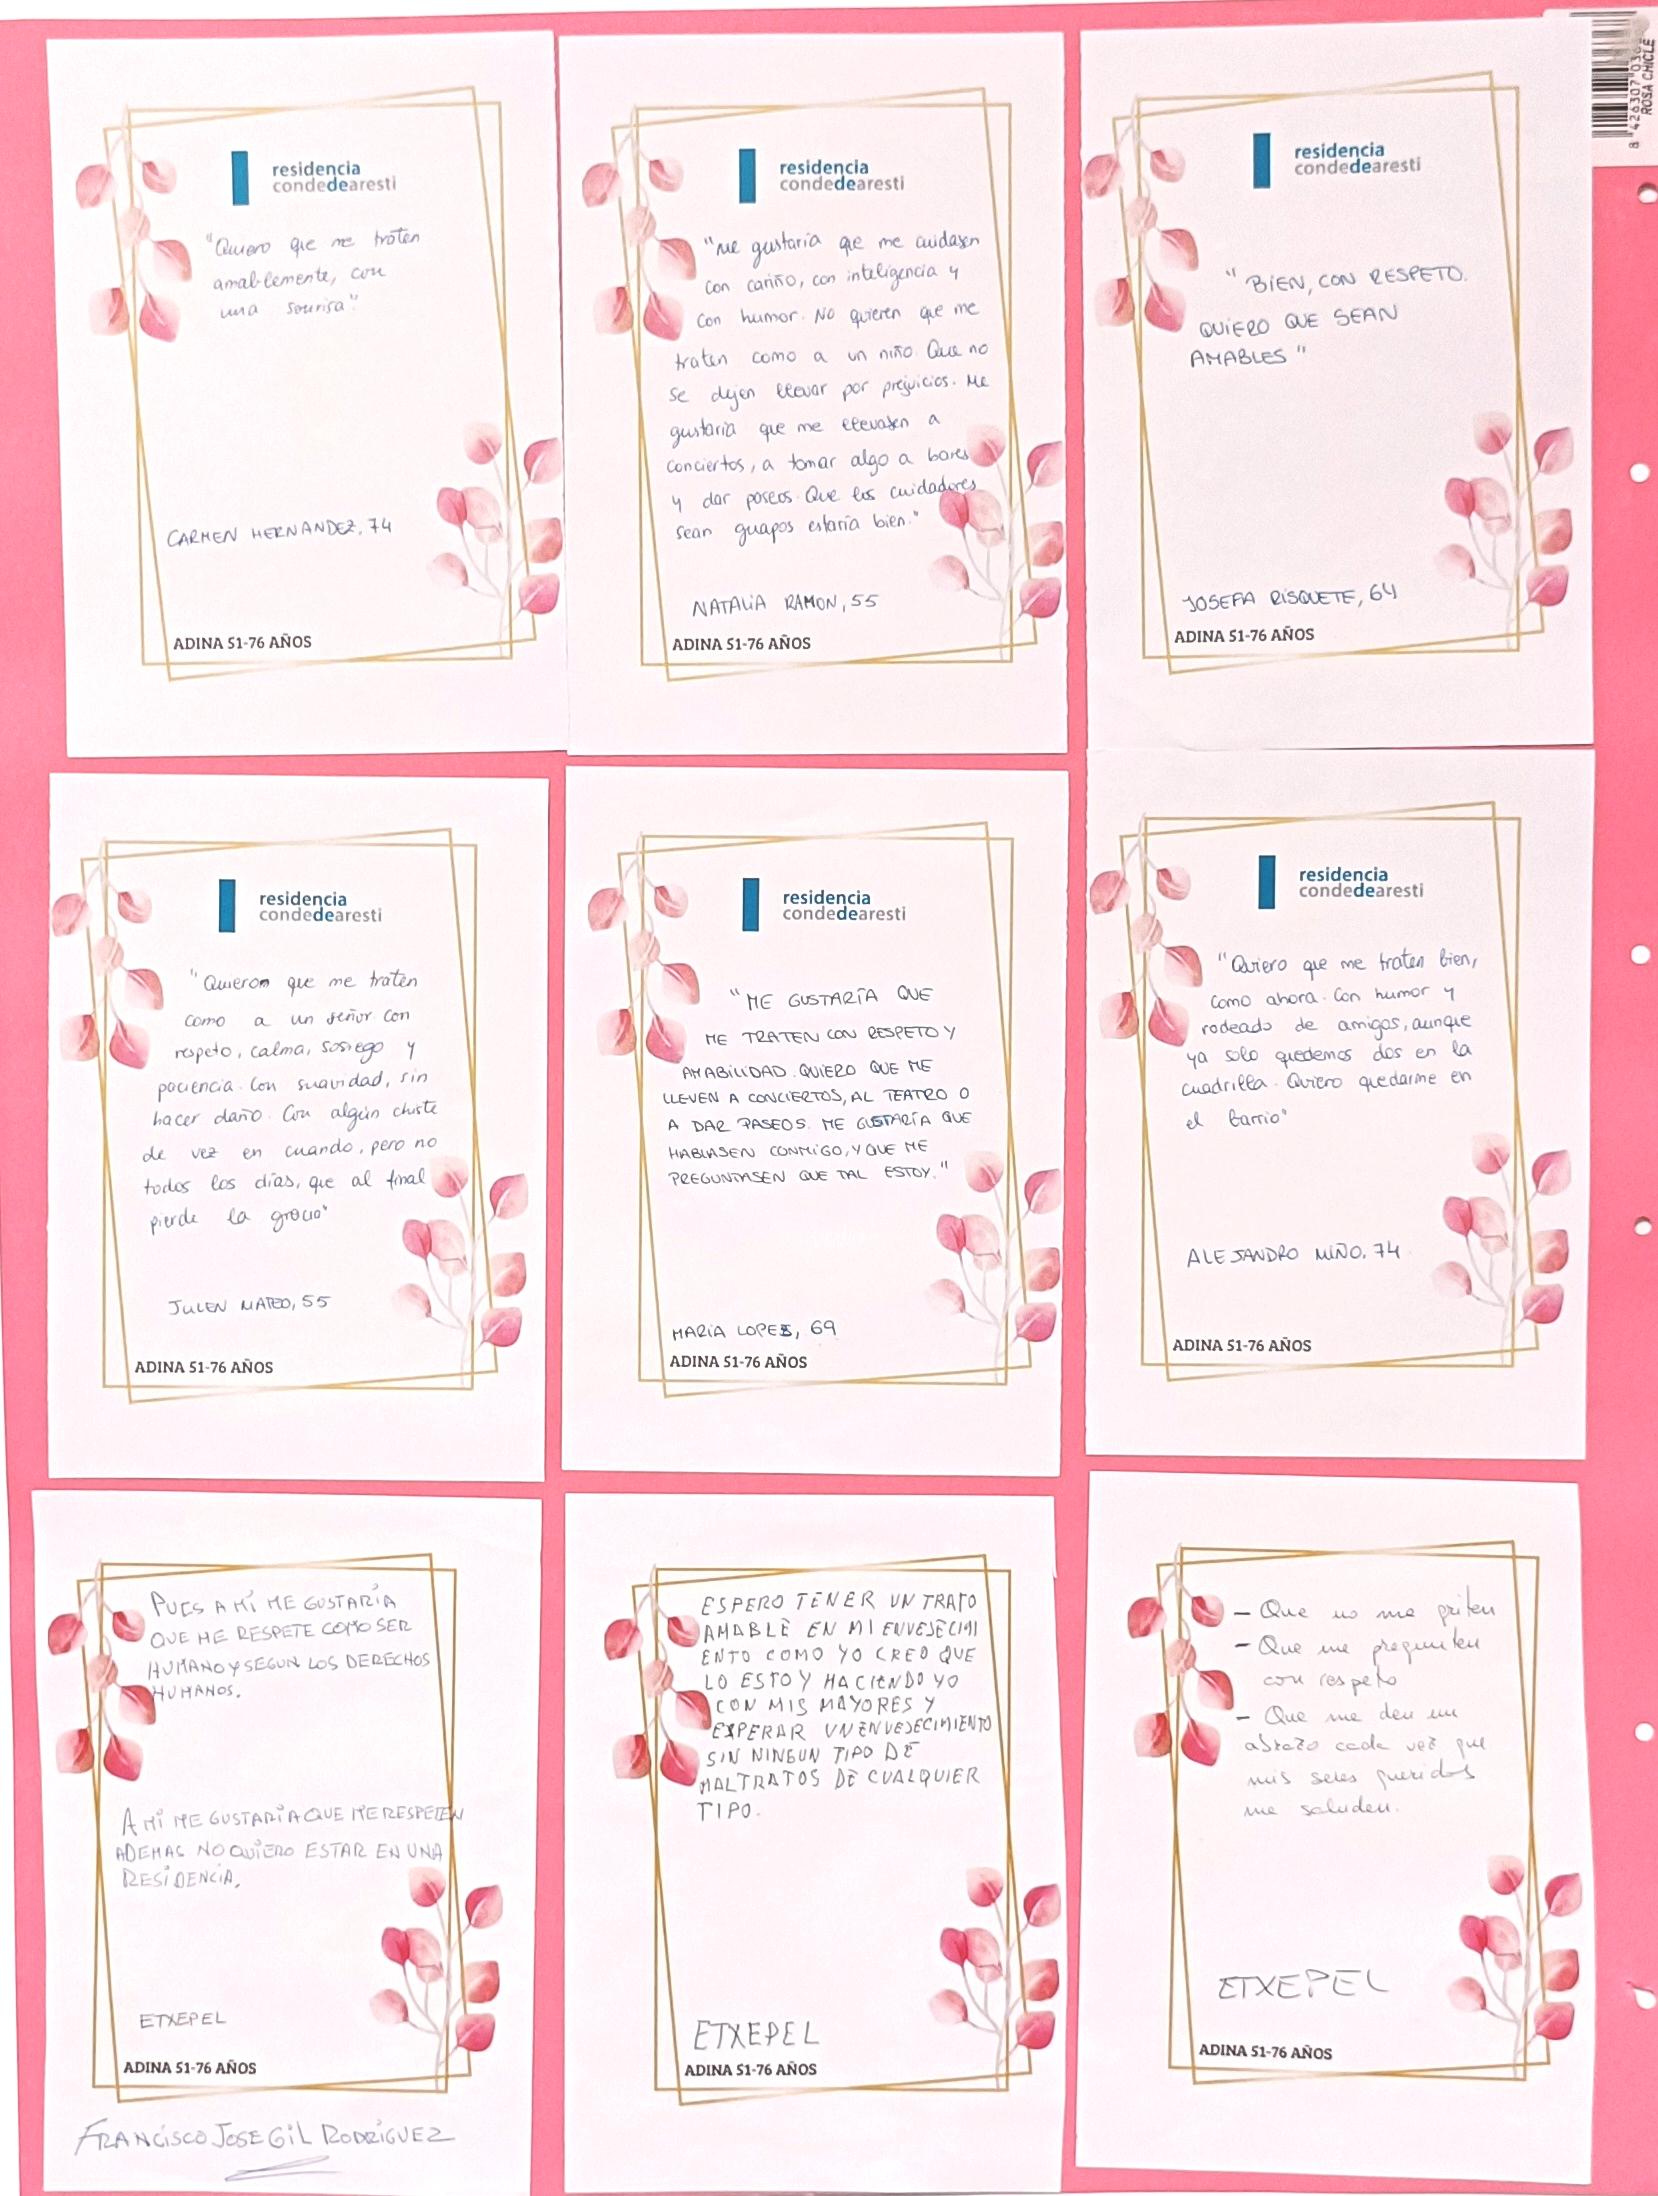 8 426307 036
ROSA CHICLE
residencia
condedearesti
"Quiero que me traten
amablemente, con
una sonrisa"
CARMEN HERNANDEZ, 74
ADINA 51-76 AÑOS
residencia
condedearesti
"Me gustaría que me cuidasen
con cariño, con inteligencia y
con humor. No quieren que me
traten como a un niño. Que no
se dejen llevar por prejuicios. Me
gustaria que me llevasen a
conciertos, a tomar algo a bares
y dar paseos. Que los cuidadores
sean guapos estaría bien."
NATALIA RAMON, 55
ADINA 51-76 AÑOS
residencia
condedearesti
"BIEN, CON RESPETO.
QUIERO QUE SEAN
AMABLES"
JOSEFA RISQUETE, 64
ADINA 51-76 AÑOS
residencia
condedearesti
"Quieron que me traten
como a un señor con
respeto, calma, sosiego y
paciencia. Con suavidad, sin
hacer daño. Con algún chiste
de vez en cuando, pero no
todos los días, que al final
pierde la gracia"
JULEN MATEO, 55
ADINA 51-76 AÑOS
residencia
condedearesti
"ME GUSTARÍA QUE
ME TRATEN CON RESPETO Y
AMABILIDAD. QUIERO QUE ME
LLEVEN A CONCIERTOS, AL TEATRO O
A DAR PASEOS. ME GUSTARÍA QUE
HABLASEN CONMIGO, Y QUE ME
PREGUNTASEN QUE TAL ESTOY."
MARIA LOPEZ, 69
ADINA 51-76 AÑOS
residencia
condedearesti
"Quiero que me traten bien,
como ahora. Con humor y
rodeado de amigos, aunque
ya solo quedemos dos en la
cuadrilla. Quiero quedarme en
el barrio"
ALEJANDRO MIÑO, 74
ADINA 51-76 AÑOS
PUES A MÍ ME GUSTARÍA
QUE ME RESPETE COMO SER
HUMANO Y SEGUN LOS DERECHOS
HUMANOS.
A MÍ ME GUSTARÍA QUE ME RESPETEN
ADEMAS NO QUIERO ESTAR EN UNA
RESIDENCIA.
ETXEPEL
ADINA 51-76 AÑOS
FRANCISCO JOSE GIL RODRÍGUEZ
ESPERO TENER UN TRATO
AMABLE EN MI ENVEJECIMI
ENTO COMO YO CREO QUE
LO ESTOY HACIENDO YO
CON MIS MAYORES Y
EXPERAR UN ENVEJECIMIENTO
SIN NINGUN TIPO DE
MALTRATOS DE CUALQUIER
TIPO.
ETXEPEL
ADINA 51-76 AÑOS
- Que no me griten
- Que me pregunten
con respeto
- Que me den un
abrazo cada vez que
mis seres queridos
me saluden.
ETXEPEL
ADINA 51-76 AÑOS